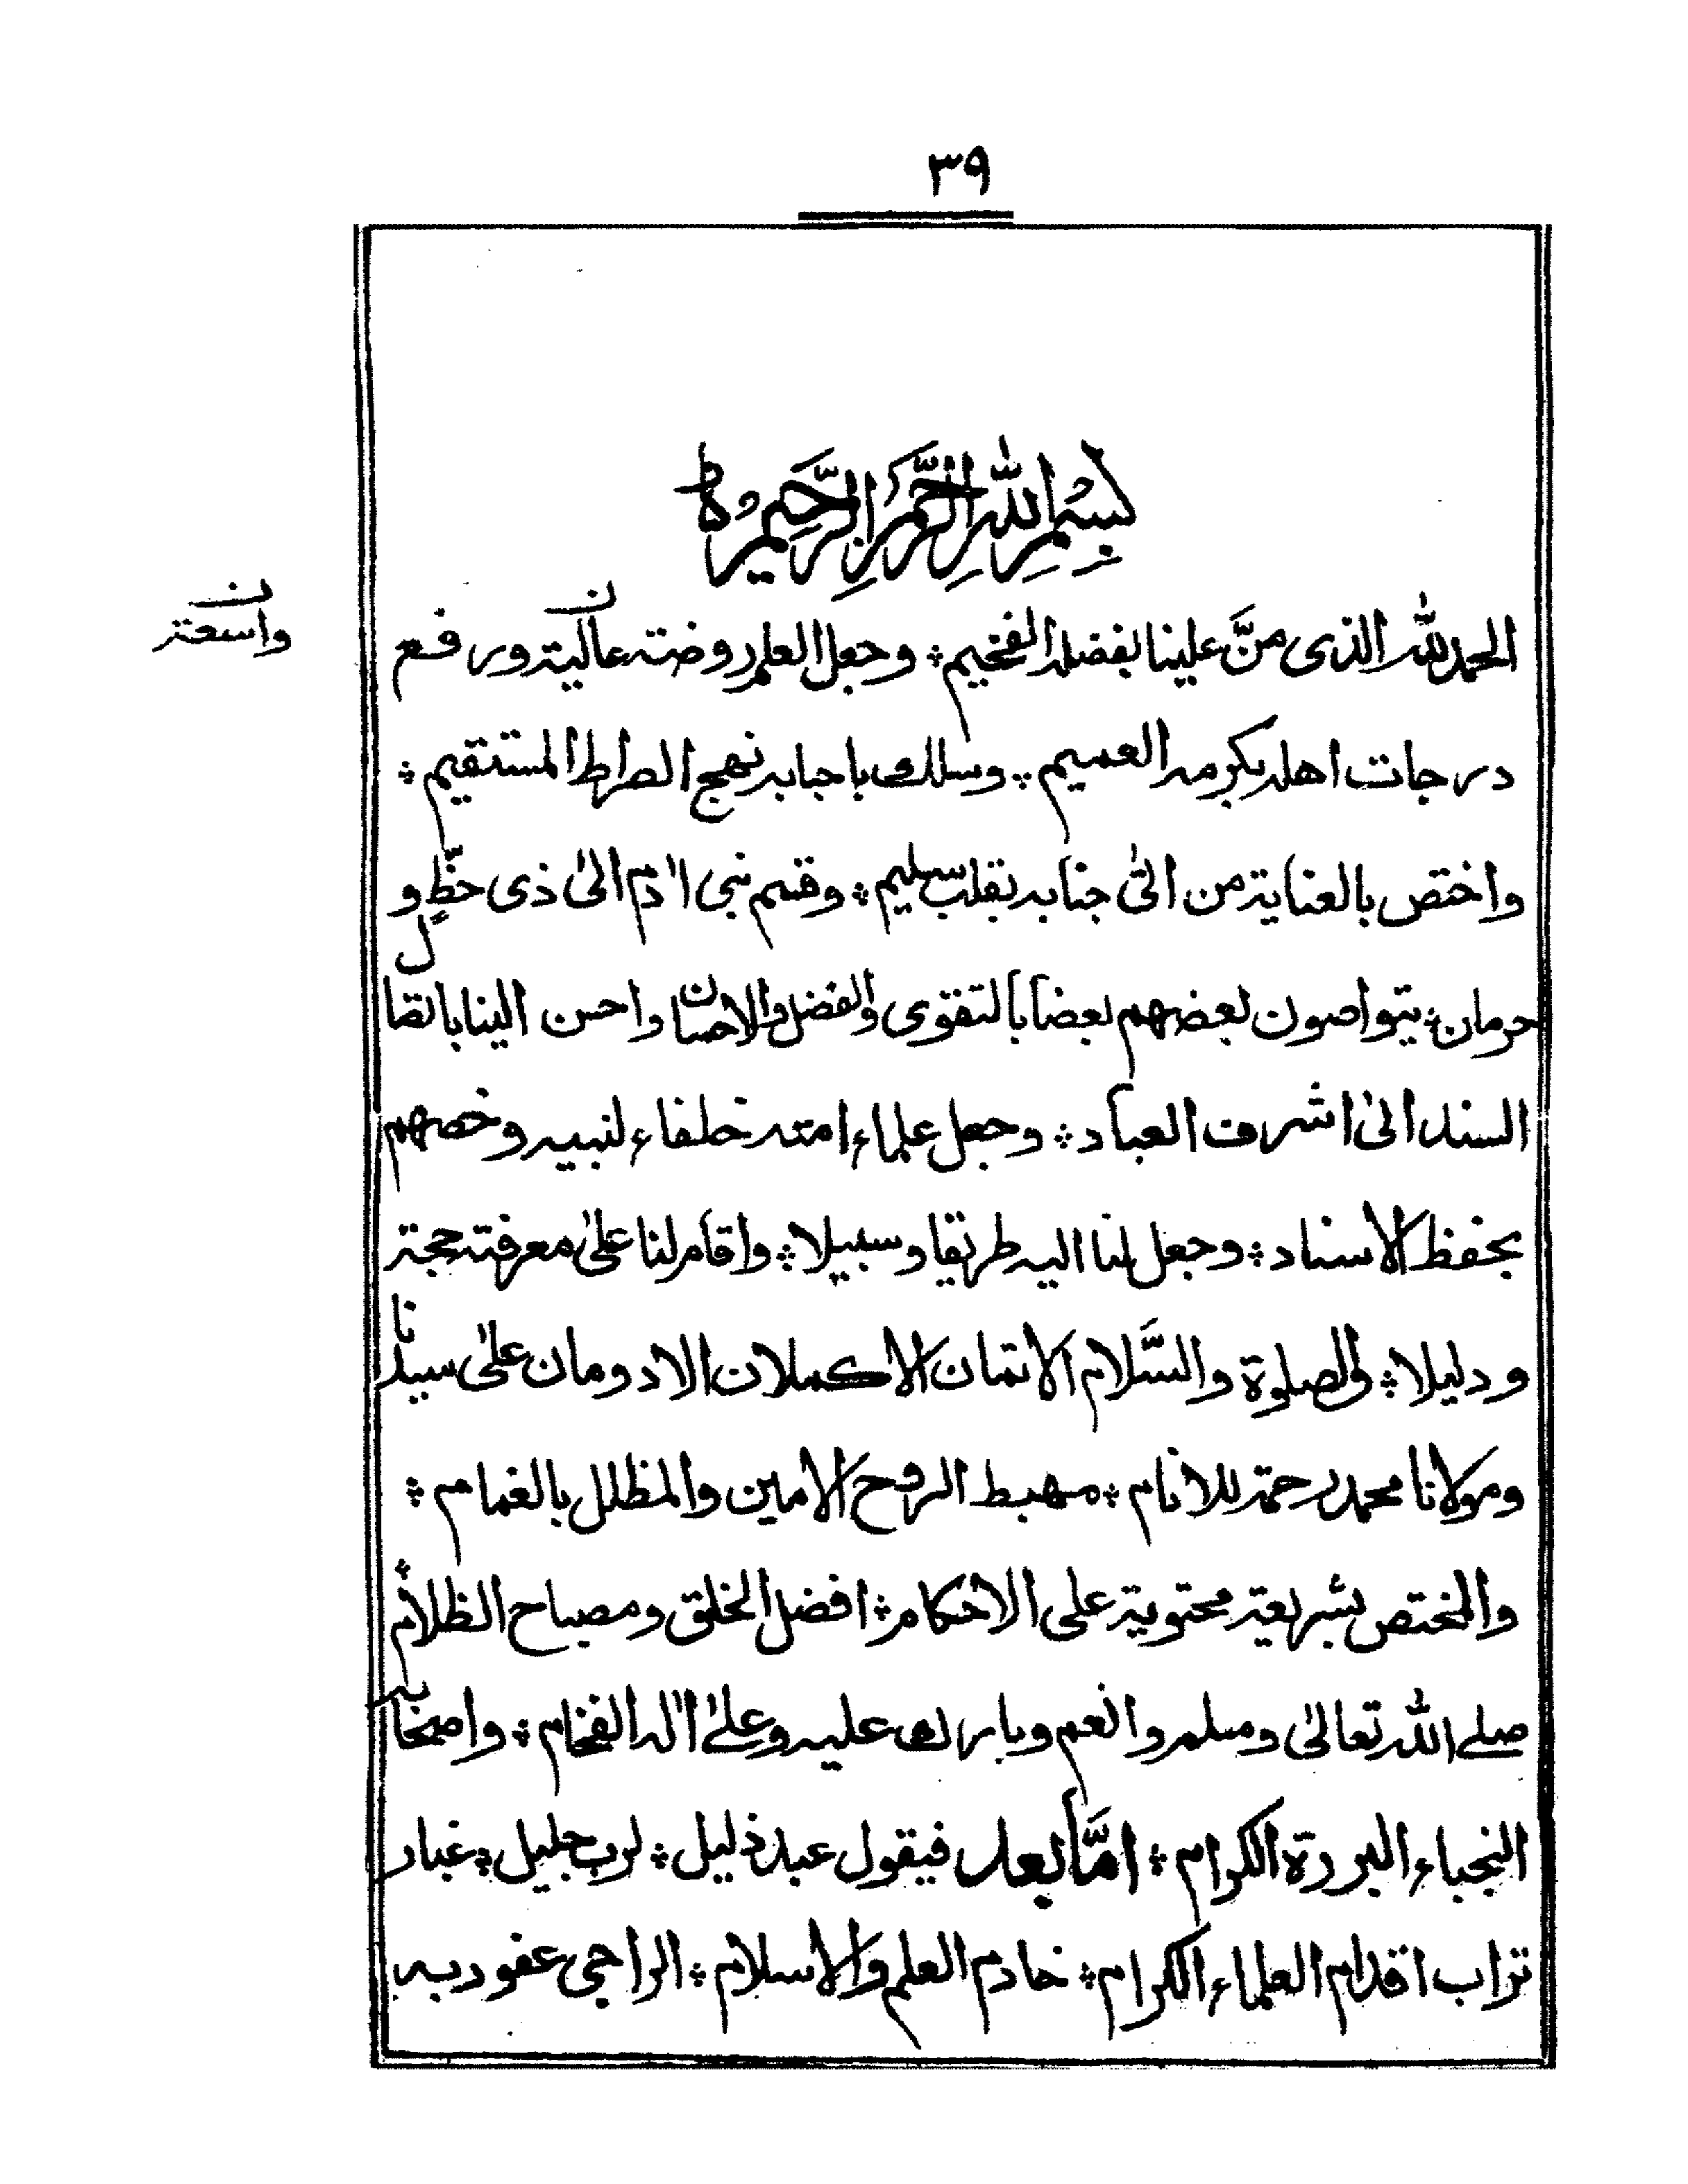 ٣٩
بِسْمِ اللهِ الرَّحْمٰنِ الرَّحِيْمِ ه
الحمد لله الذى منَّ علينا بفضله الفخيم ؞ وجعل العلم روضته عالية ورفع
ن
واسعة
درجات اهله بكرمه العميم ؞ وسلك باحبابه نهج الصراط المستقيم ؞
واختص بالعناية من اتى جنابه بقلب سليم ؞ وقسم بنى اٰدم الىٰ ذى حظٍّ و
حرمان ؞ يتواصون بعضهم بعضا بالتقوى والفضل والاحسان واحسن الينا باتصال
السند الىٰ اشرف العباد ؞ وجعل علماء امته خلفاء لنبيه وخصهم
بحفظ الاسناد ؞ وجعل لنا اليه طريقا وسبيلا ؞ واقام لنا علىٰ معرفته حجة
ودليلا ؞ والصلوة والسَّلام الاتمان الاكملان الادومان علىٰ سيدنا
ومولانا محمد رحمة للانام ؞ مهبط الروح الامين والمظلل بالغمام ؞
والمختص بشريعة محتوية على الاحكام ؞ افضل الخلق ومصباح الظلام ؞
صلے الله تعالىٰ وسلم وانعم وبارك عليه وعلىٰ اٰله الفخام ؞ واصحابه
النجباء البررة الكرام ؞ امَّا بعد فيقول عبد ذليل ؞ لرب جليل ؞ غبار
تراب اقدام العلماء الكرام ؞ خادم العلم والاسلام ؞ الراجى عفو ربه